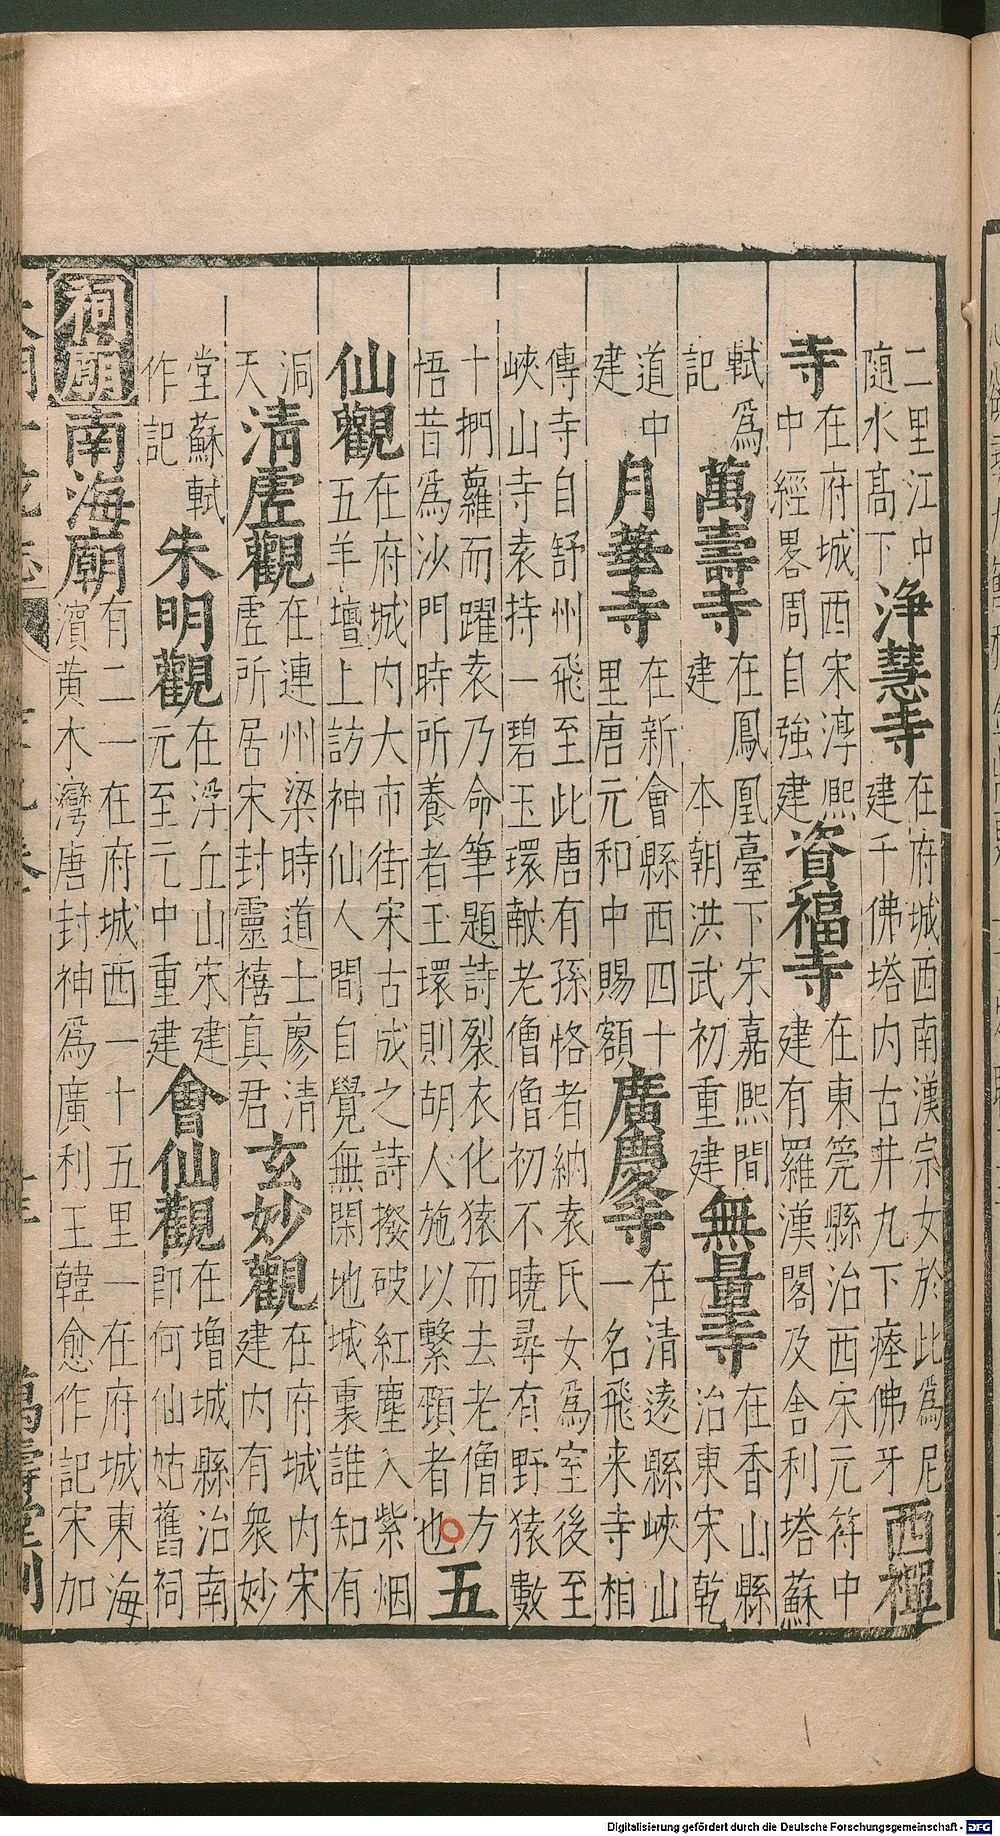 二里江中
隨水高下
淨慧寺
在府城西南漢宗女於此為尼
建千佛塔内古井九下瘞佛牙
西禪
寺
在府城西宋淳熙
中經畧周自強建
資福寺
在東筦縣治西宋元符中
建有羅漢閣及舍利塔蘇
軾爲
記
萬壽寺
在鳳凰臺下宋嘉熙間
建 本朝洪武初重建
無量寺
在香山縣
治東宋乾
道中
建
月華寺
在新會縣西四十
里唐元和中賜額
廣慶寺
在清遠縣峽山
一名飛来寺相
傳寺自舒州飛至此唐有孫恪者納袁氏女爲室後至
峽山寺袁持一碧玉環獻老僧僧初不曉尋有野猿數
十捫蘿而躍袁乃命筆題詩裂衣化猿而去老僧方
悟昔爲沙門時所養者玉環則胡人施以繫頸者也
五
仙觀
在府城内大市街宋古成之詩撥破紅塵入紫烟
五羊壇上訪神仙人間自覺無閑地城裏誰知有
洞
天
清虛觀
在連州梁時道士廖清
虛所居宋封靈禧真君
玄妙觀
在府城内宋
建内有衆妙
堂蘇軾
作記
朱明觀
在浮丘山宋建
元至元中重建
會仙觀
在増城縣治南
卽何仙姑舊祠
祠廟
南海廟
有二一在府城西一十五里一在府城東海
濵黄木灣唐封神爲廣利王韓愈作記宋加
萬壽堂刊
Digitalisierung gefördert durch die Deutsche Forschungsgemeinschaft - DFG